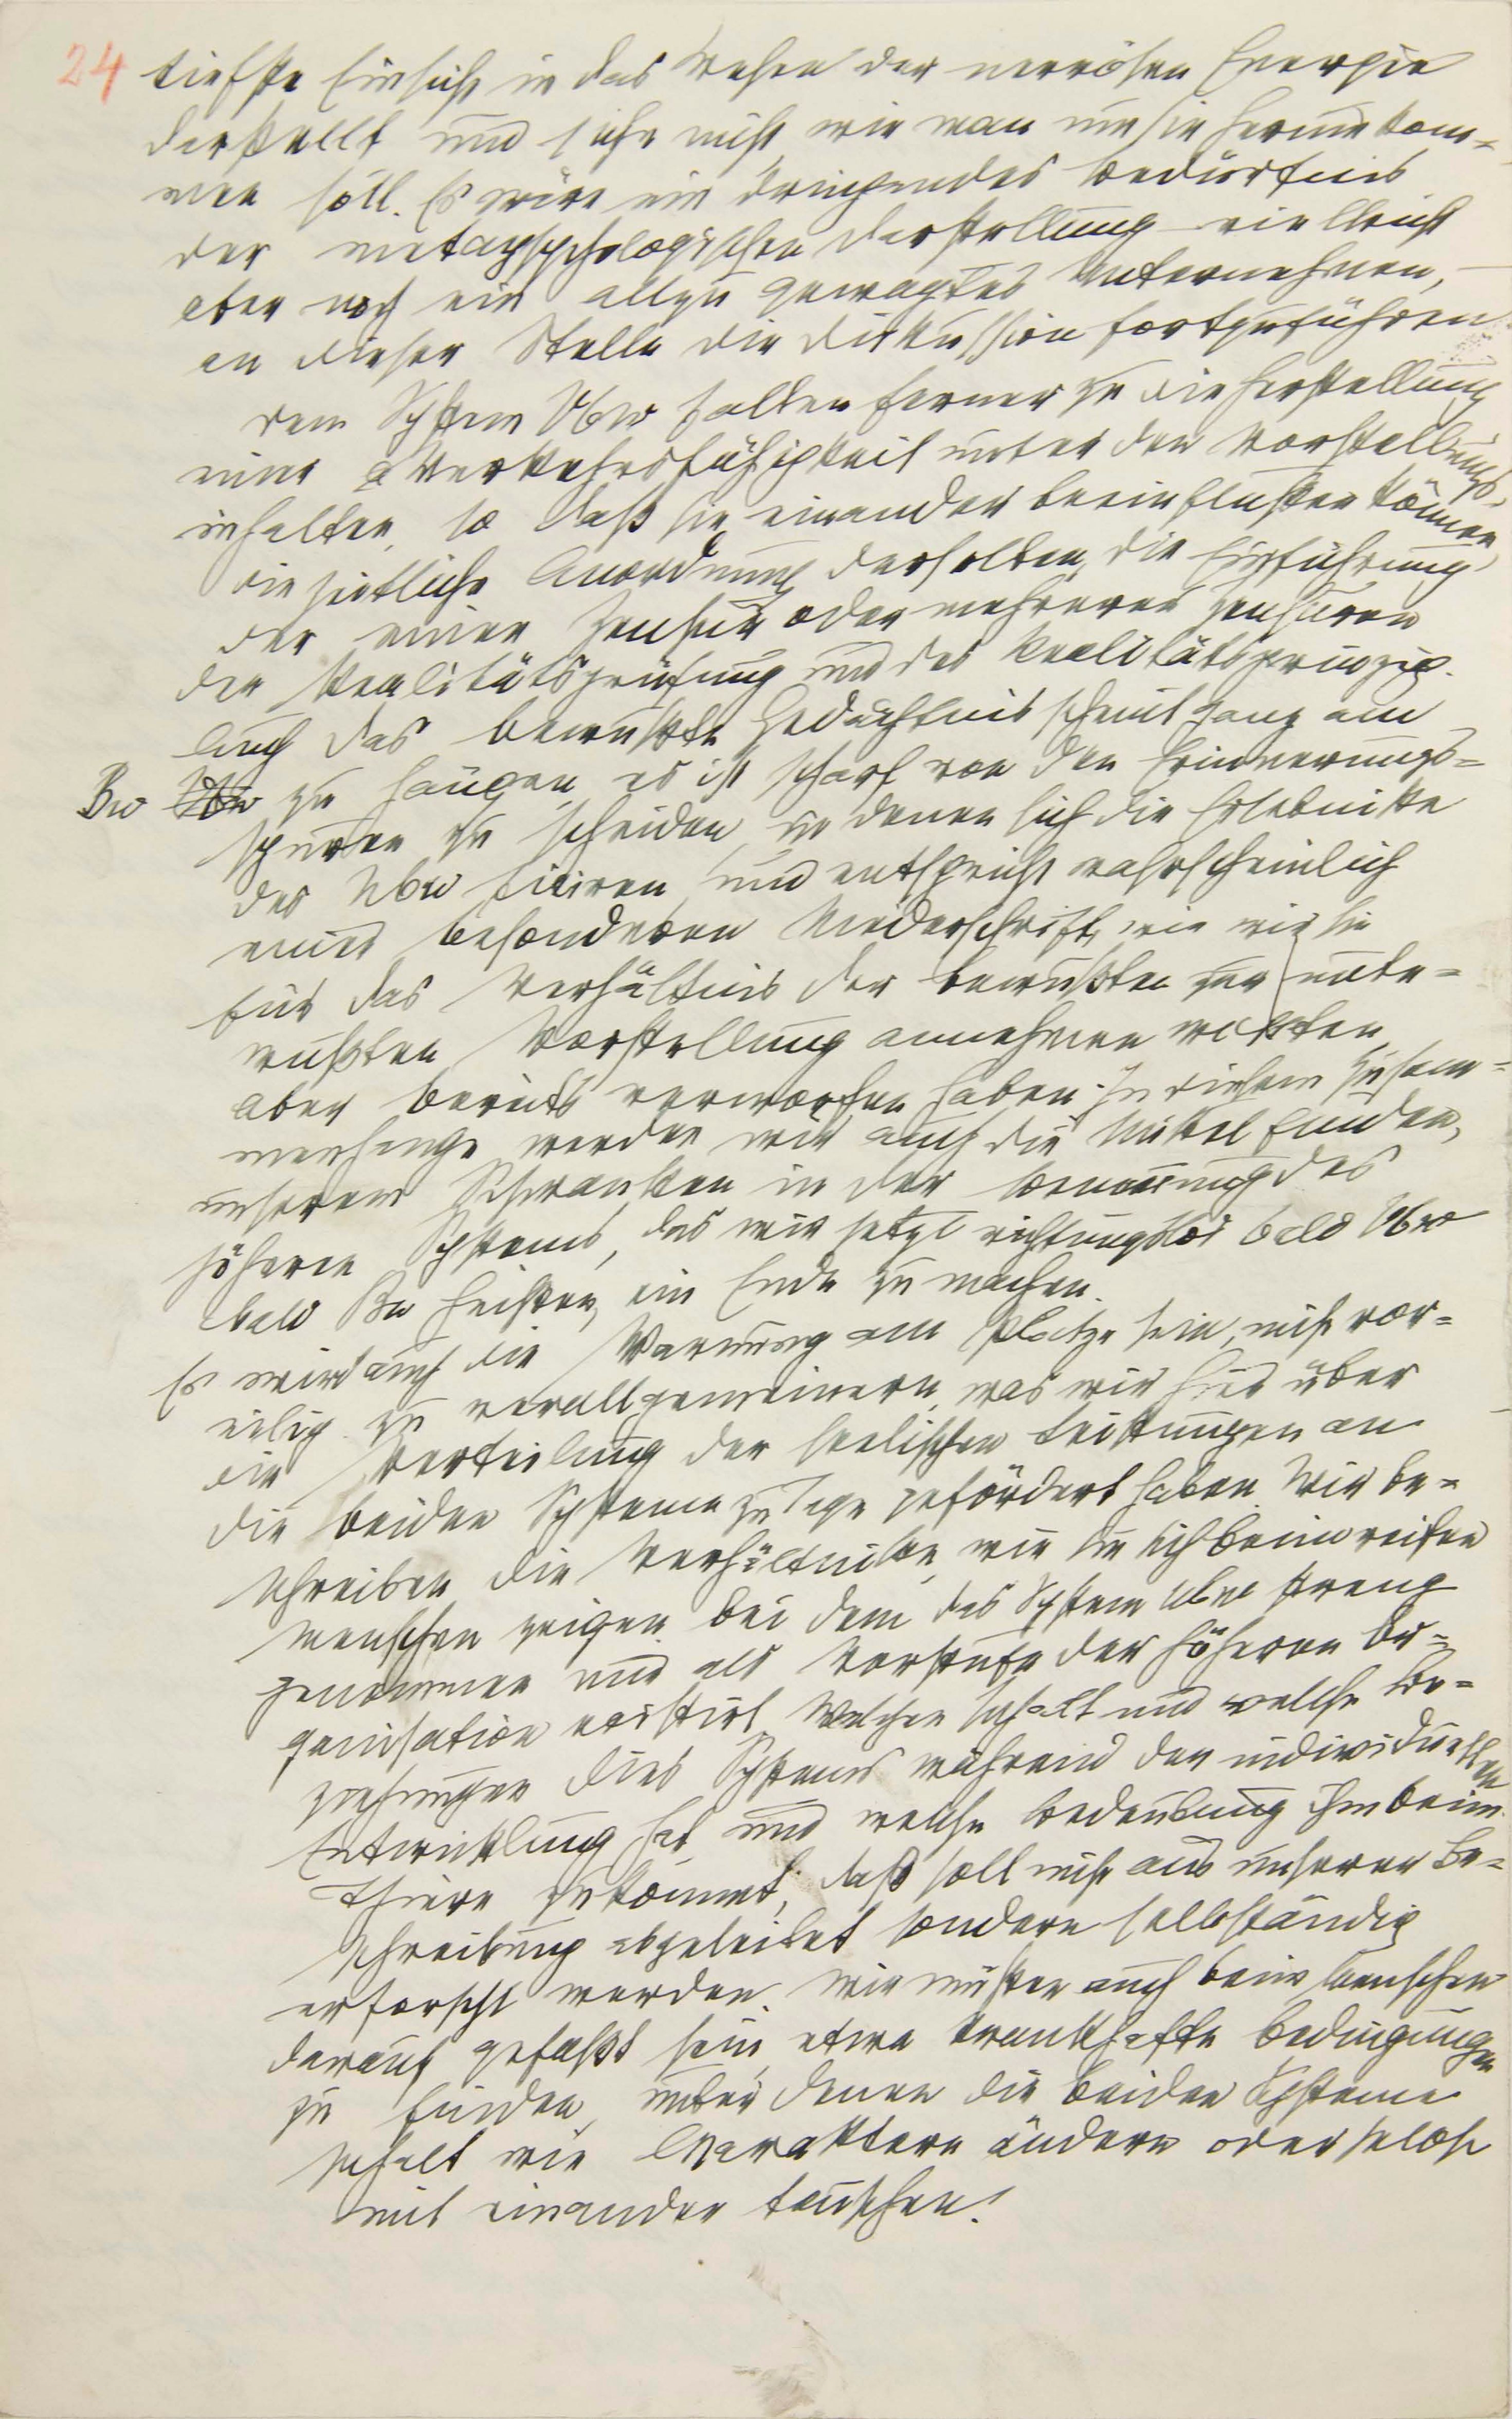 24 tiefste Einsicht in das Wesen der nervösen Energie
darstellt und sehe nicht, wie man um sie herumkom-
men soll. Es wäre ein dringendes Bedürfnis
der metapsychologischen Darstellung – vielleicht
aber noch ein allzu gewagtes Unternehmen, –
an dieser Stelle die Diskussion fortzuführen
dem System Vbw fallen ferner zu die Herstellung
einer Verkehrsfähigkeit unter den Vorstellungs-
inhalten, so daß sie einander beeinflußen können,
die zeitliche Anordnung derselben, die Einführung
der einen Zensur oder mehrerer Zensuren
die Realitätsprüfung und das Realitätsprinzip.
Auch das bewußte Gedächtnis scheint ganz am
Bw Vbw zu hängen, es ist scharf von den Erinnerungs-
spuren zu scheiden, in denen sich die Erlebnisse
des Ubw fixiren, und entspricht wahrscheinlich
einer besonderen Niederschrift, wie wir sie
für das Verhältnis der bewußten zur unbe-
wußten Vorstellung annehmen wollten,
aber bereits verworfen haben. In diesem Zusam-
menhange werden wir auch die Mittel finden,
unserem Schwanken in der Benennung des
höheren Systems, das wir jetzt richtungslos bald Vbw
bald Bw heißen, ein Ende zu machen.
Es wird auch die Warnung am Platze sein, nicht vor-
eilig zu verallgemeinern, was wir hier über
die Verteilung der seelischen Leistungen an
die beiden Systeme zu Tage gefördert haben. Wir be-
schreiben die Verhältniße, wie sie sich beim reifen
Menschen zeigen, bei dem das System Ubw streng
genommen nur als Vorstufe der höheren Or-
ganisation existirt. Welchen Inhalt und welche Be-
ziehungen dies System während der individuellen
Entwicklung hat, und welche Bedeutung ihm beim
Thiere zukommt, daß soll nicht aus unserer Be-
schreibung abgeleitet sondern selbständig
erforscht werden. Wir müßen auch beim Menschen
darauf gefaßt sein, etwa krankhafte Bedingungen
zu finden, unter denen die beiden Systeme
Inhalt wie Charaktere ändern oder selbst
mit einander tauschen.